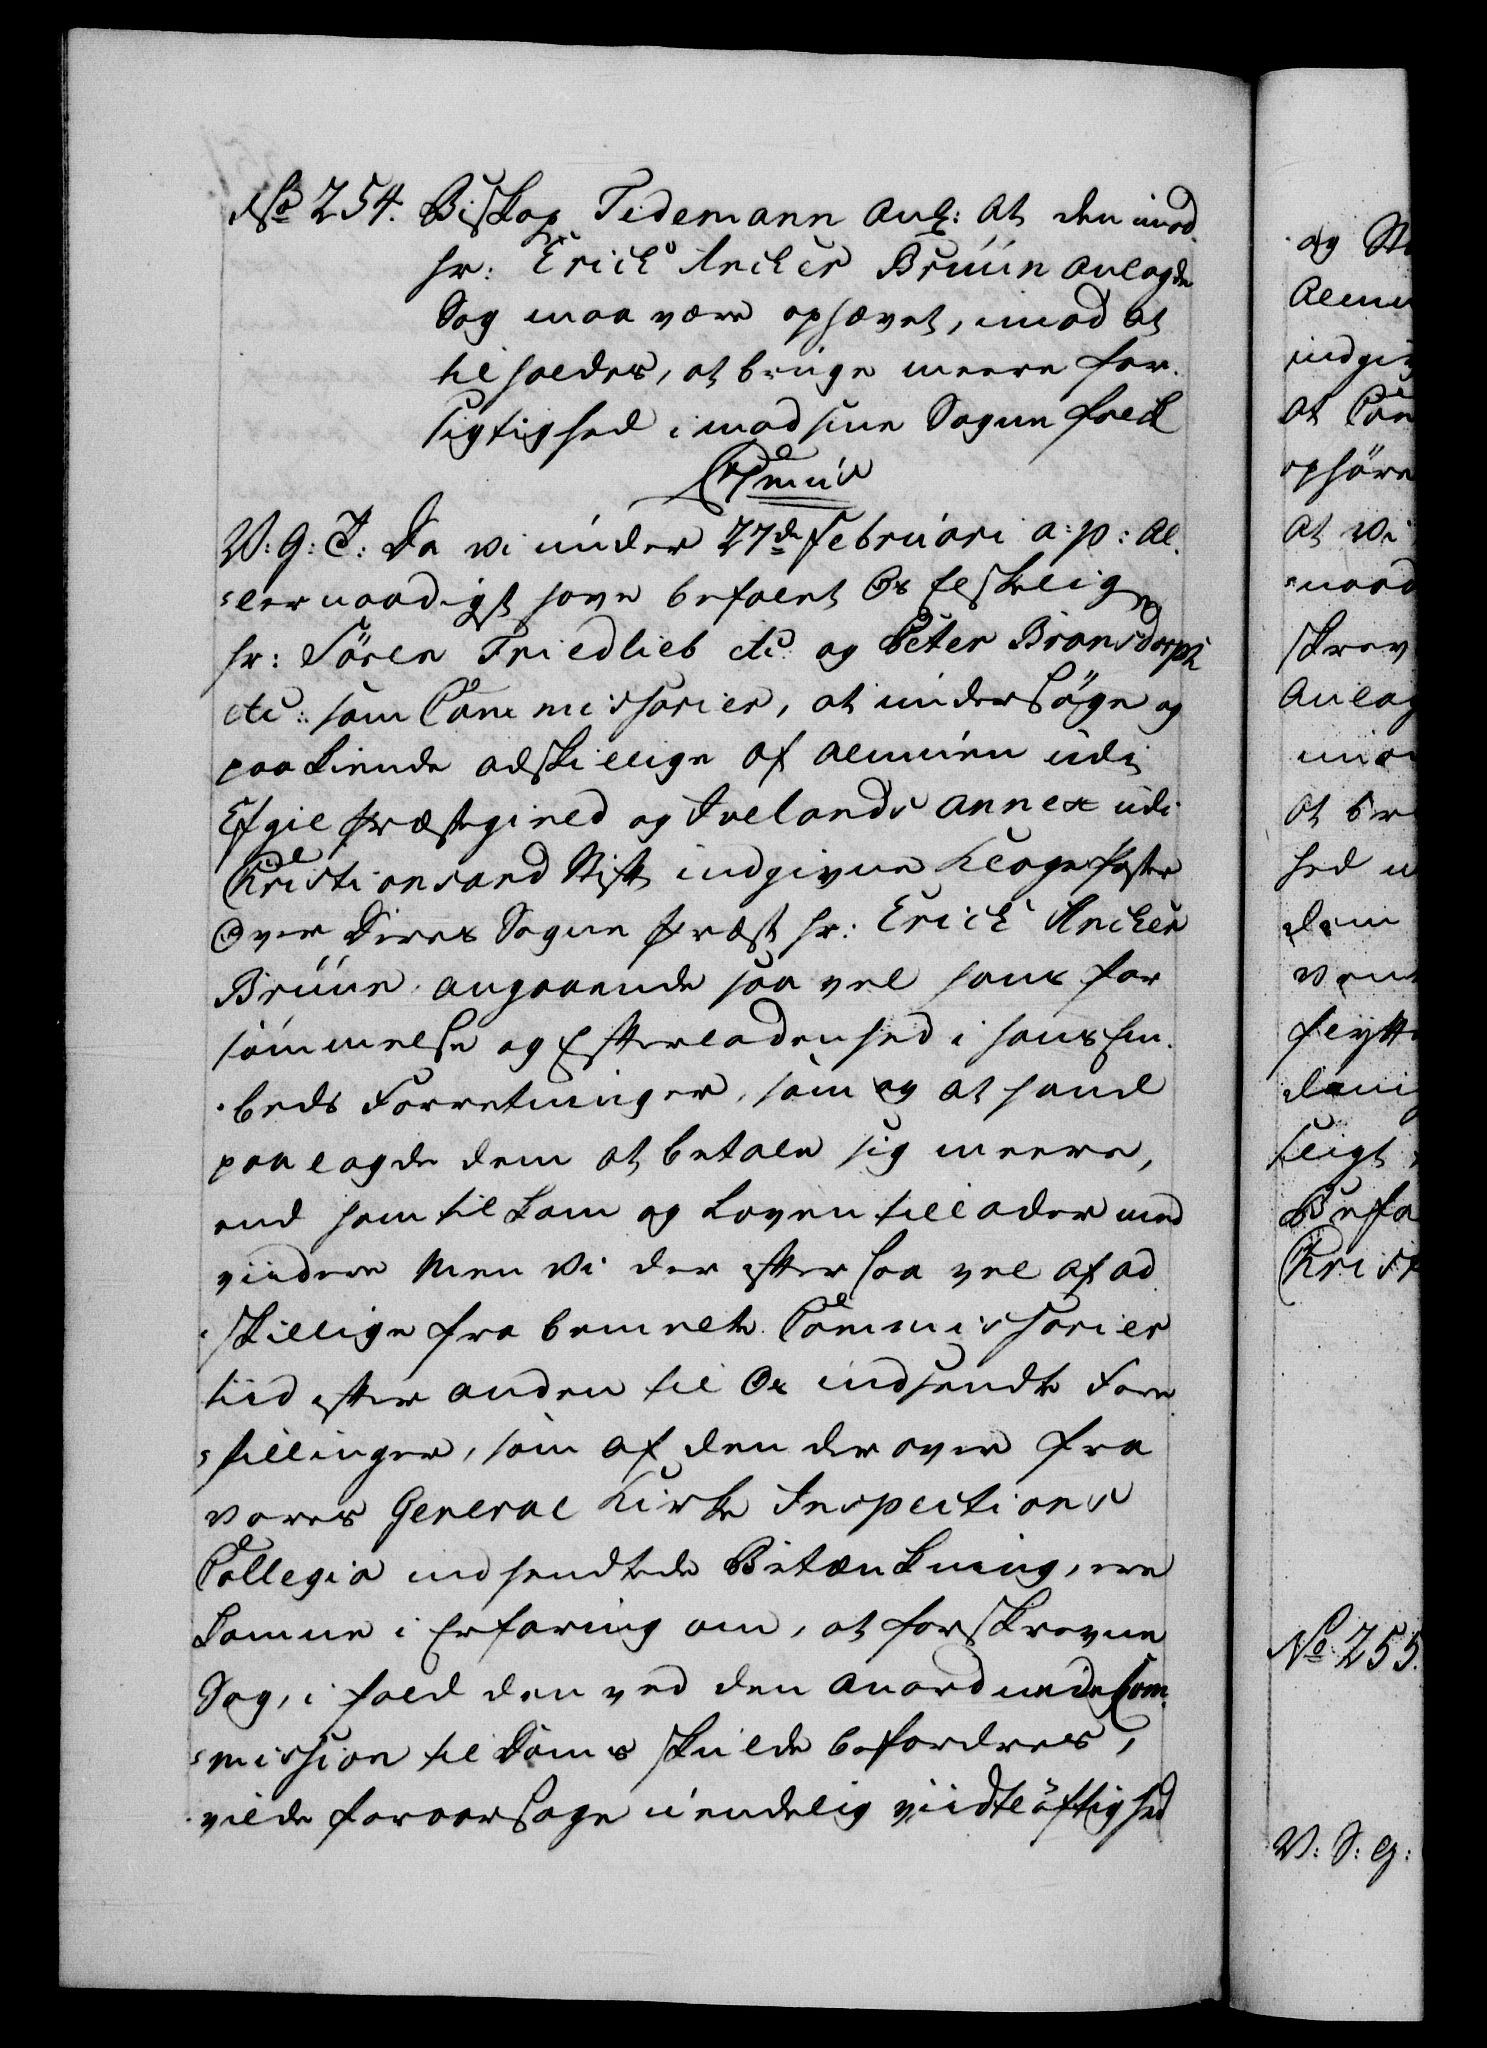 No 254. Biskop Tidemann ang: at den imod
hr: Erich Ancher Bruun anlagde
Sag maa være ophævet, imod at
tilholdes, at bruge meere for-
sigtighed imod sine Sogne folk
V: G: T: Da vi under 27de Februari a: p: al-
-lernaadigst have befalet Os elskelig
hr: Sören Friedlieb etc og Peter Bronsdorph
etc: som Commissarier, at undersöge og
paakiende adskillige af almuen udi
Efgie præstegield og Ivelands annex udi
Christiansand Stift indgivne Klage poster
Over Deres Sogne præst hr: Erich Ancher
Bruun, angaaende saa vel hans for
sömmelse og Efterladenhed i hans Em-
-beds Forretninger, som og at hand
paalagde dem at betale sig meere,
end ham tilkom og Loven tillader med
viidere Men Vi der efter saa vel af ad
-skillige fra bemelte Commissarier
tiid efter anden til Os indsendte Fore
-stillinger, som af den der over fra
vores General Kirke Inspections
Collegio indsendte Betænkning, ere
komne i Erfaring om, at forskrevne
Sag, i fald den ved den anordnede Com-
-mission til Doms skulde befordres,
vilde foraarsage uendelig viidtlöftighed
og
at
indgiv
at Com
ophöre
at vi
-naad
skrev
anlag
at
hed
dem
flytt
Befa
Christ
No 255.
V: S: G: